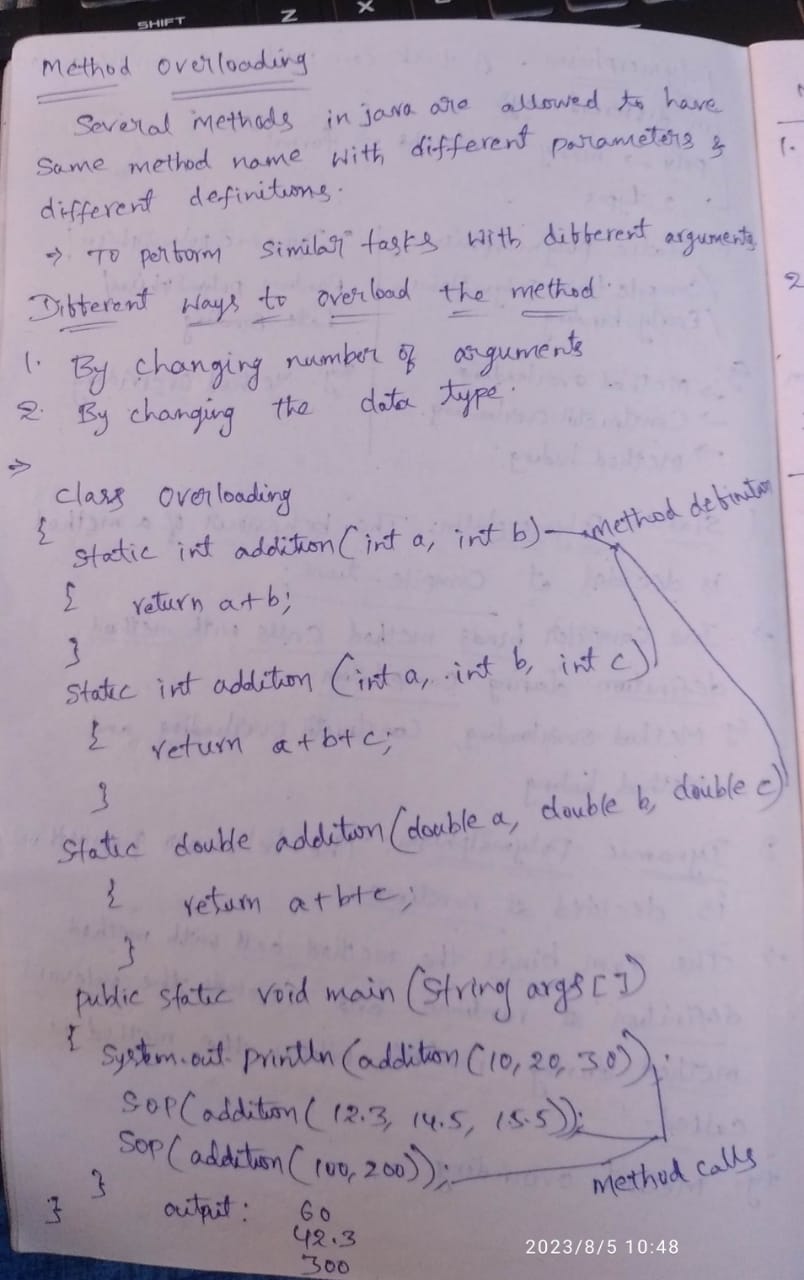 SHIFT Z X
Method Overloading
Several methods in java are allowed to have
Same method name with different parameters &
different definitions.
→ To perform similar tasks with different arguments
Different ways to overload the method.
1. By changing number of arguments
2. By changing the data type.
⇒
class Overloading
{
static int addition(int a, int b) — method definition
{ return a+b;
}
static int addition (int a, int b, int c)
{ return a+b+c;
}
static double addition(double a, double b, double c)
{ return a+b+c;
}
public static void main (String args [])
{
System.out.println(addition(10, 20, 30));
SOP(addition(12.3, 14.5, 15.5));
SOP(addition(100, 200));
method calls
}
} output: 60
42.3
300
1.
2
2023/8/5 10:48